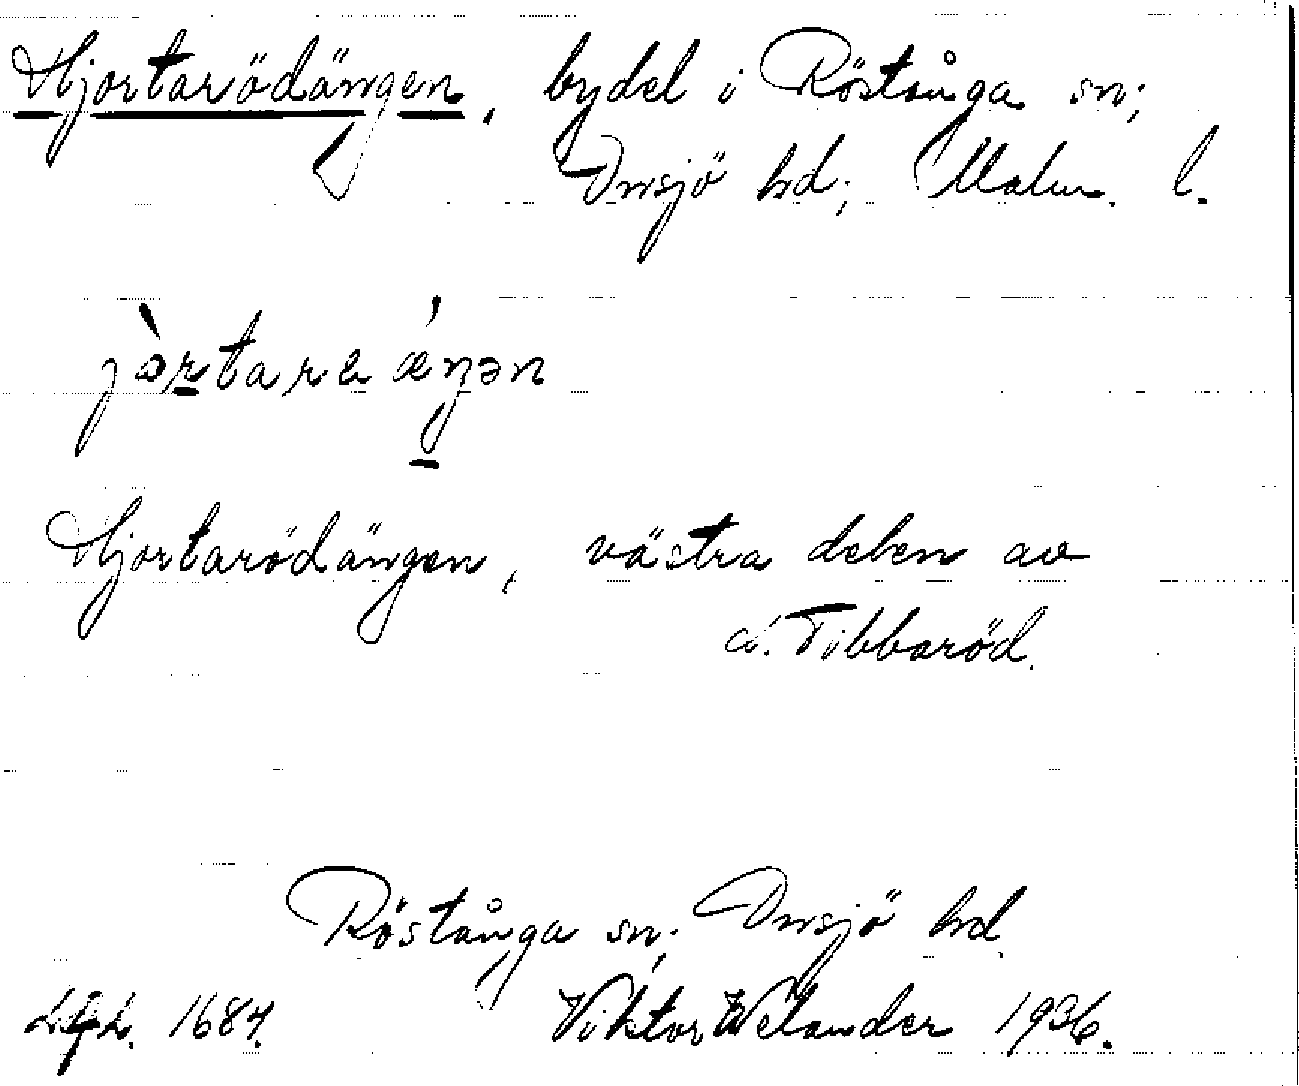 Hjortarödängen, bydel i Röstånga sn;
Onsjö hd; Malm. l.
jòrtarɐ ǽŋən
Hjortarödängen, västra delen av
d. Tibbaröd.
Röstånga sn; Onsjö hd.
1684. Viktor Welander 1936.